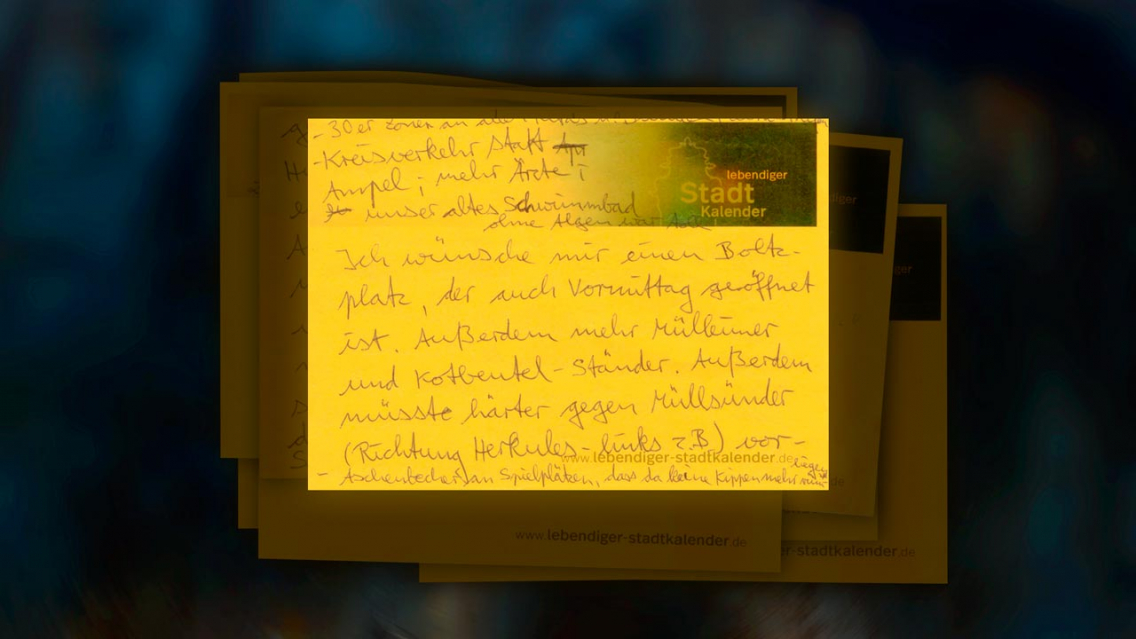 - 30er Zonen an alle
- Kreisverkehr statt
Ampel ; mehr Ärzte !
unser altes Schwimmbad
ohne Algen war
lebendiger
Stadt
Kalender
Ich wünsche mir einen Boltz-
platz, der auch Vormittag geöffnet
ist. Außerdem mehr Mülleimer
und Kotbeutel-Ständer. Außerdem
müsste härter gegen Müllsünder
(Richtung Herkules-links z.B) vor-
www.lebendiger-stadtkalender.de
- Aschenbecher an Spielplätzen, dass da keine Kippen mehr
www.lebendiger-stadtkalender.de
r-stadtkalender.de